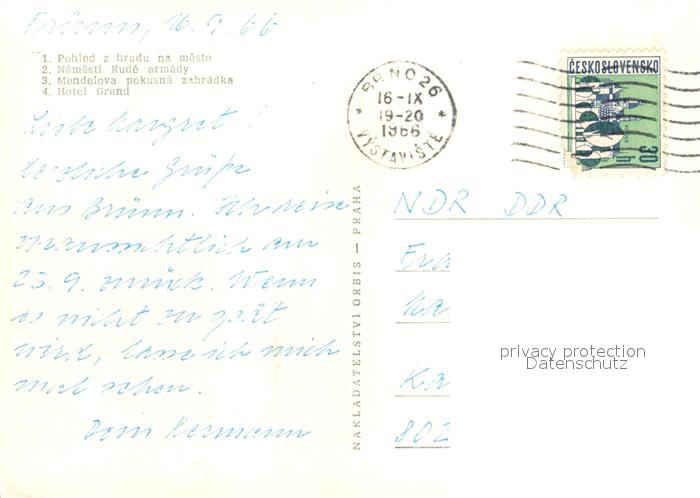 Brünn, 16.9.66
1. Pohled z hradu na město
2. Náměstí Rudé armády
3. Mendelova pokusná zahrádka
4. Hotel Grand
Liebe Margret!
Herzliche Grüße
aus Brünn. Ich reise
voraussichtlich am
23.9. zurück. Wenn
es nicht zu spät
wird, lasse ich mich
mal sehen.
Dein Hermann
NAKLADATELSTVÍ ORBIS — PRAHA
BRNO 26
16-IX
19-20
1966
* VÝSTAVIŠTĚ *
ČESKOSLOVENSKO
30 h
NDR DDR
Fra
Ma
Ka
802
privacy protection
Datenschutz